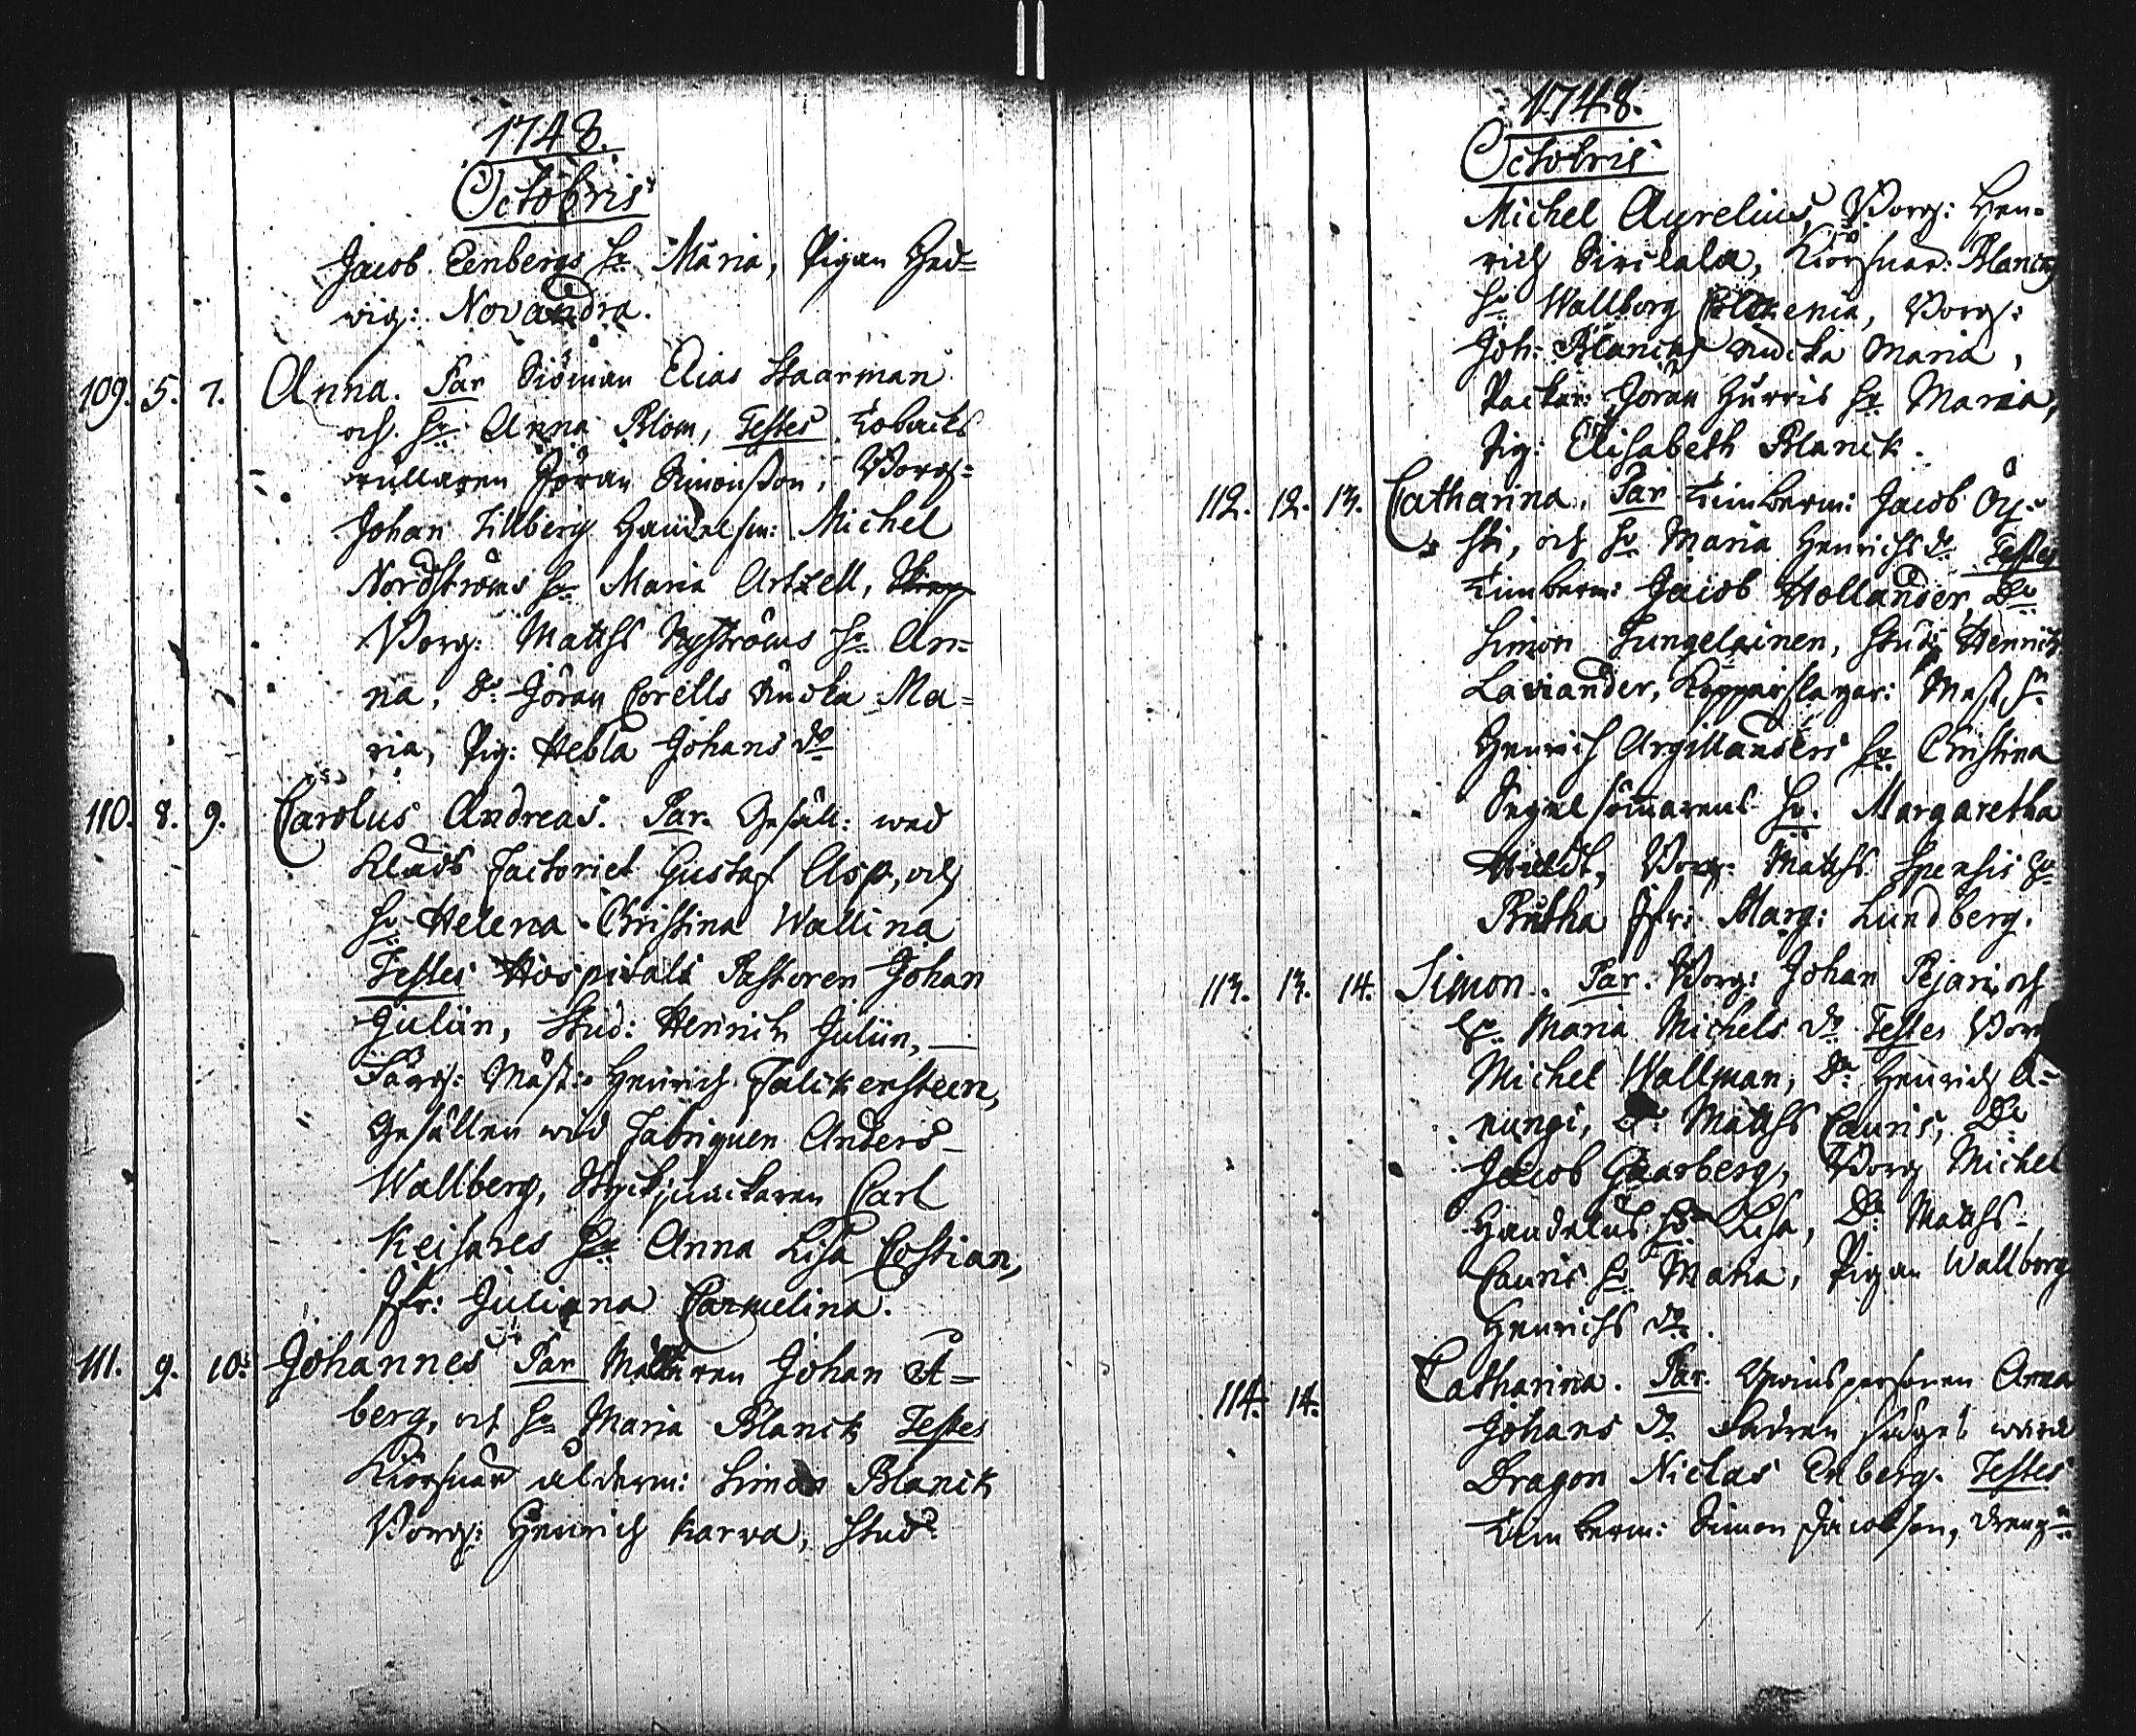 1748.
Octobris
Jacob Eenbergs H:u Maria, Pigan Hed=
vig: Novandra.
109. 5. 7. Anna. Par Siöman Elias Staarman
och H:u Anna Blom, Testes Tobacks
rullaren Jöran Simonsson, Borg:
Johan Lillberg Handelsm: Michel
Nordströms H:u Maria Artzell,
Borg: Matths Nyströms H:u An=
na, D:o Jöran Corells Äncka Ma=
ria, Pig: Hebla Johans d:o
110. 8. 9. Carolus Andreas. Par. Gesäll: wed
Kläds Factoriet Gustaf Asp, och
H:u Helena Christina Wallina
Testes Hospitals Pastoren Johan
Juliin, Stud: Henrich Juliin,
Färg: Mäst: Henrich Falckensteen,
Gesällen wid Fabriquen Anders
Wallberg, Styckjunckaren Carl
Keisares H:u Anna Lisa Costian,
Jfr: Juliana Carmelina.
111. 9. 10. Johannes Par Johan A=
berg, och H:u Maria Blanck Testes
Körsnär ålderm: Simon Blanck
Borg: Henrich Karva, Stud:
1748.
Octobris
Michel Aurelius, Borg: Hen=
rich Sirckala, Körsnär: Blancks
H:u Wallborg Polckenia, Borg:
Joh: Blancks Äncka Maria,
Packar: Jöran Hurris H:u Maria,
Pig: Elisabeth Blanck.
112. 12. 13. Catharina. Par Timberm: Jacob
och H:u Maria Henrichs d:o Testes
Timberm: Jacob Hollander, D:o
Simon Tungelainen, Stud: Henrich
Laviander, Kopparslagar: Mäst:
Henrich Argillanders H:u Christina
Segelsömmarens H:u Margaretha
Borg: Matths H:u
Brutha Jfr: Marg: Lundberg.
113. 13. 14. Simon. Par. Borg: Johan Pejari, och
H:u Maria Michels d:o Testes Borg
Michel Wallman, D:o Henrich A=
nungi, D:o Matths Cauris, D:o
Jacob Gaarberg, Borg Michel
H:u Lisa, D:o Matths
Cauris H:u Maria, Pigan Wallborg
Henrichs d:o.
114. 14. Catharina. Par. Qwinspersonen Anna
Johans d:o Fadren säges wara
Dragon Niclas Enberg. Testes
Timberm: Simon Jacobson, Dreng: